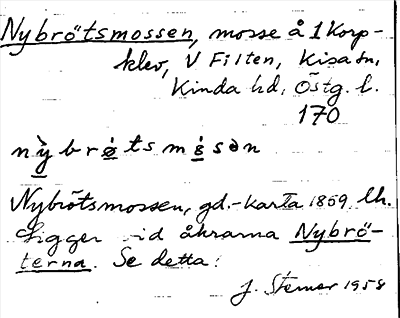 Nybrötsmossen, mosse å 1 Korp-
klev, V Filten, Kisa sn,
Kinda hd, Östg. l.
170
nỳbrø̀tsmɞ̀sən
Nybrötsmossen, gd.-karta 1859. lh.
Ligger vid åkrarna Nybrö-
terna. Se detta!
J. Sterner 1958